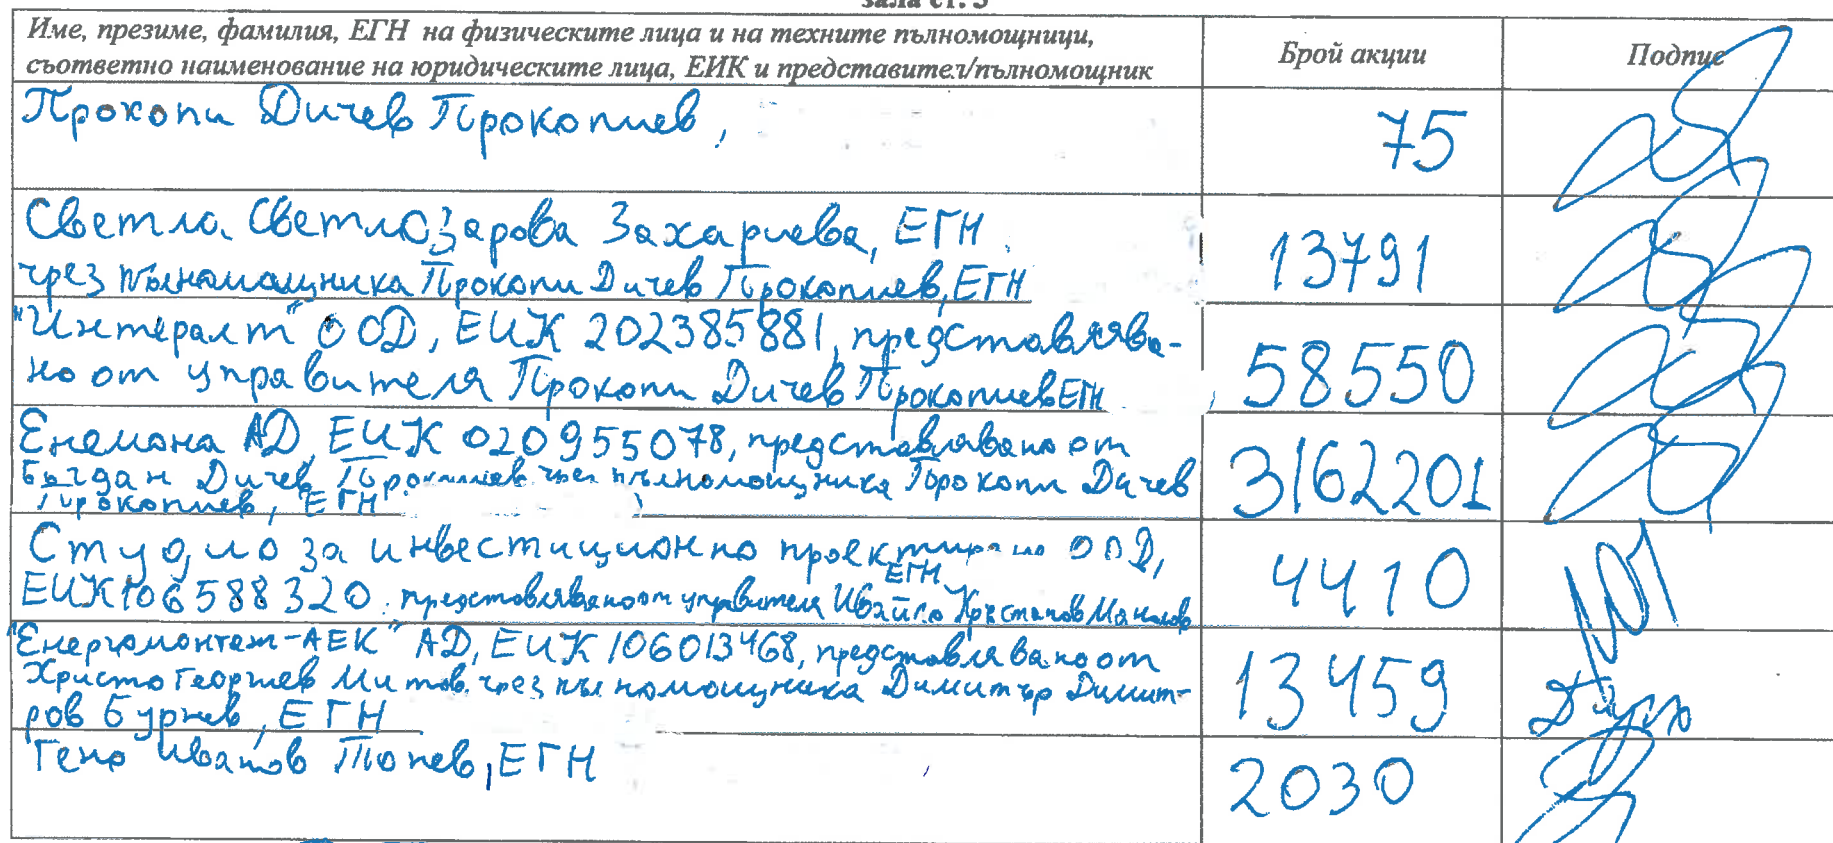 зала ст. 3
Име, презиме, фамилия, ЕГН на физическите лица и на техните пълномощници,
съответно наименование на юридическите лица, ЕИК и представител/пълномощник
Брой акции
Подпис
Прокопи Дичев Прокопиев,
75
Светла Светлозарова Захариева, ЕГН
чрез пълномощника Прокопи Дичев Прокопиев, ЕГН
13791
"Интералт" ООД, ЕИК 202385881, представлява-
но от управителя Прокопи Дичев Прокопиев ЕГН
58550
Енемона АД, ЕИК 020955078, представлявано от
Богдан Дичев Прокопиев чрез пълномощника Прокопи Дичев
Прокопиев, ЕГН
3162201
Студио за инвестиционно проектиране ООД,
ЕГН
ЕИК 106588320, представлявано от управителя Ивайло Кръстанов Манолов
4410
"Енергомонтаж-АЕК" АД, ЕИК 106013468, представлявано от
Христо Георгиев Митов чрез пълномощника Димитър Димит-
ров Бурнев, ЕГН
13459
Гено Иванов Тонев, ЕГН
2030